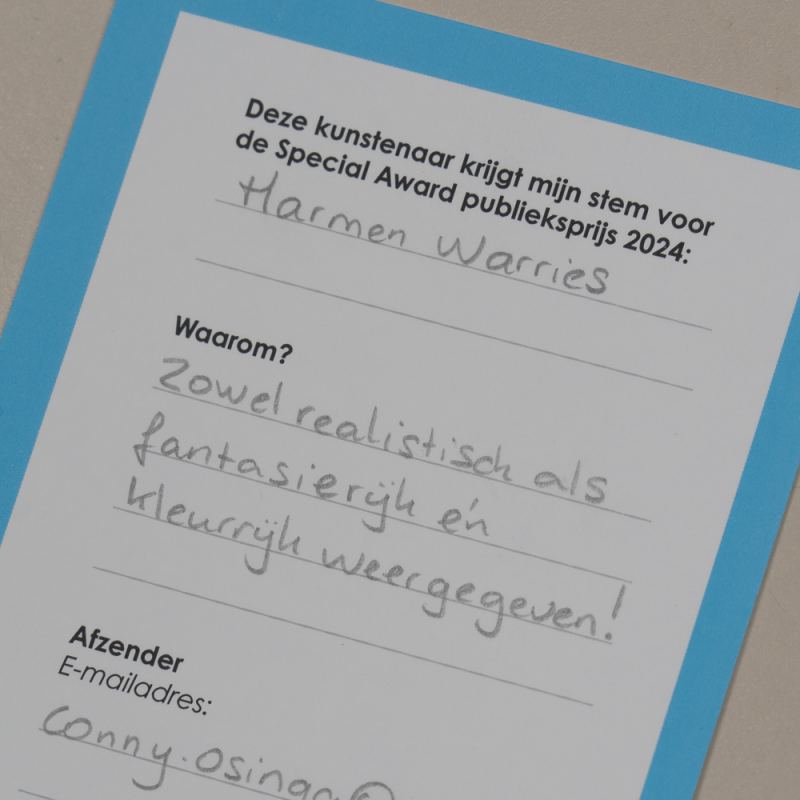 Deze kunstenaar krijgt mijn stem voor
de Special Award publieksprijs 2024:
Harmen Warries
Waarom?
Zowel realistisch als
fantasierijk én
kleurrijk weergegeven!
Afzender
E-mailadres:
Conny.Osinga@